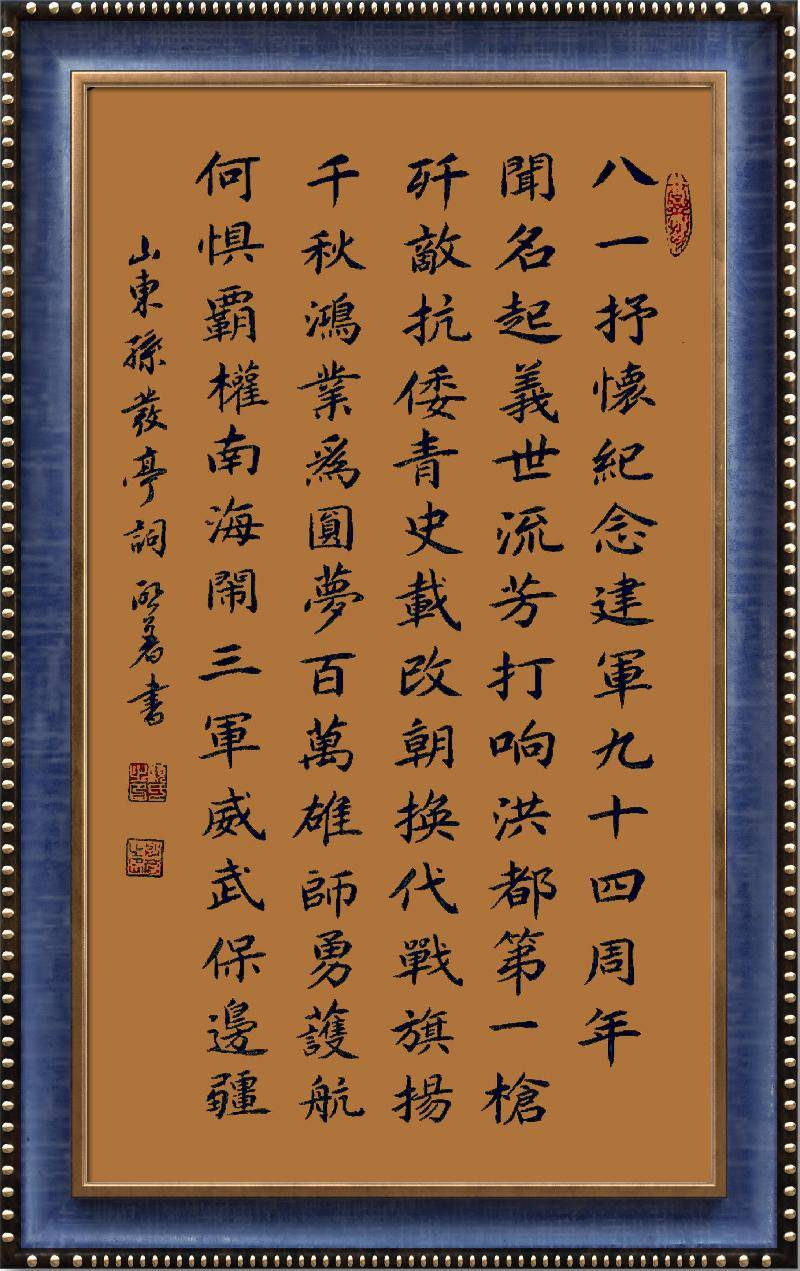 八一抒懷紀念建軍九十四周年
聞名起義世流芳打响洪都第一槍
歼敵抗倭青史載改朝換代戰旗揚
千秋鴻業爲圓夢百萬雄師勇護航
何惧覇權南海鬧三軍威武保邊疆
山東孫發亭詞 書